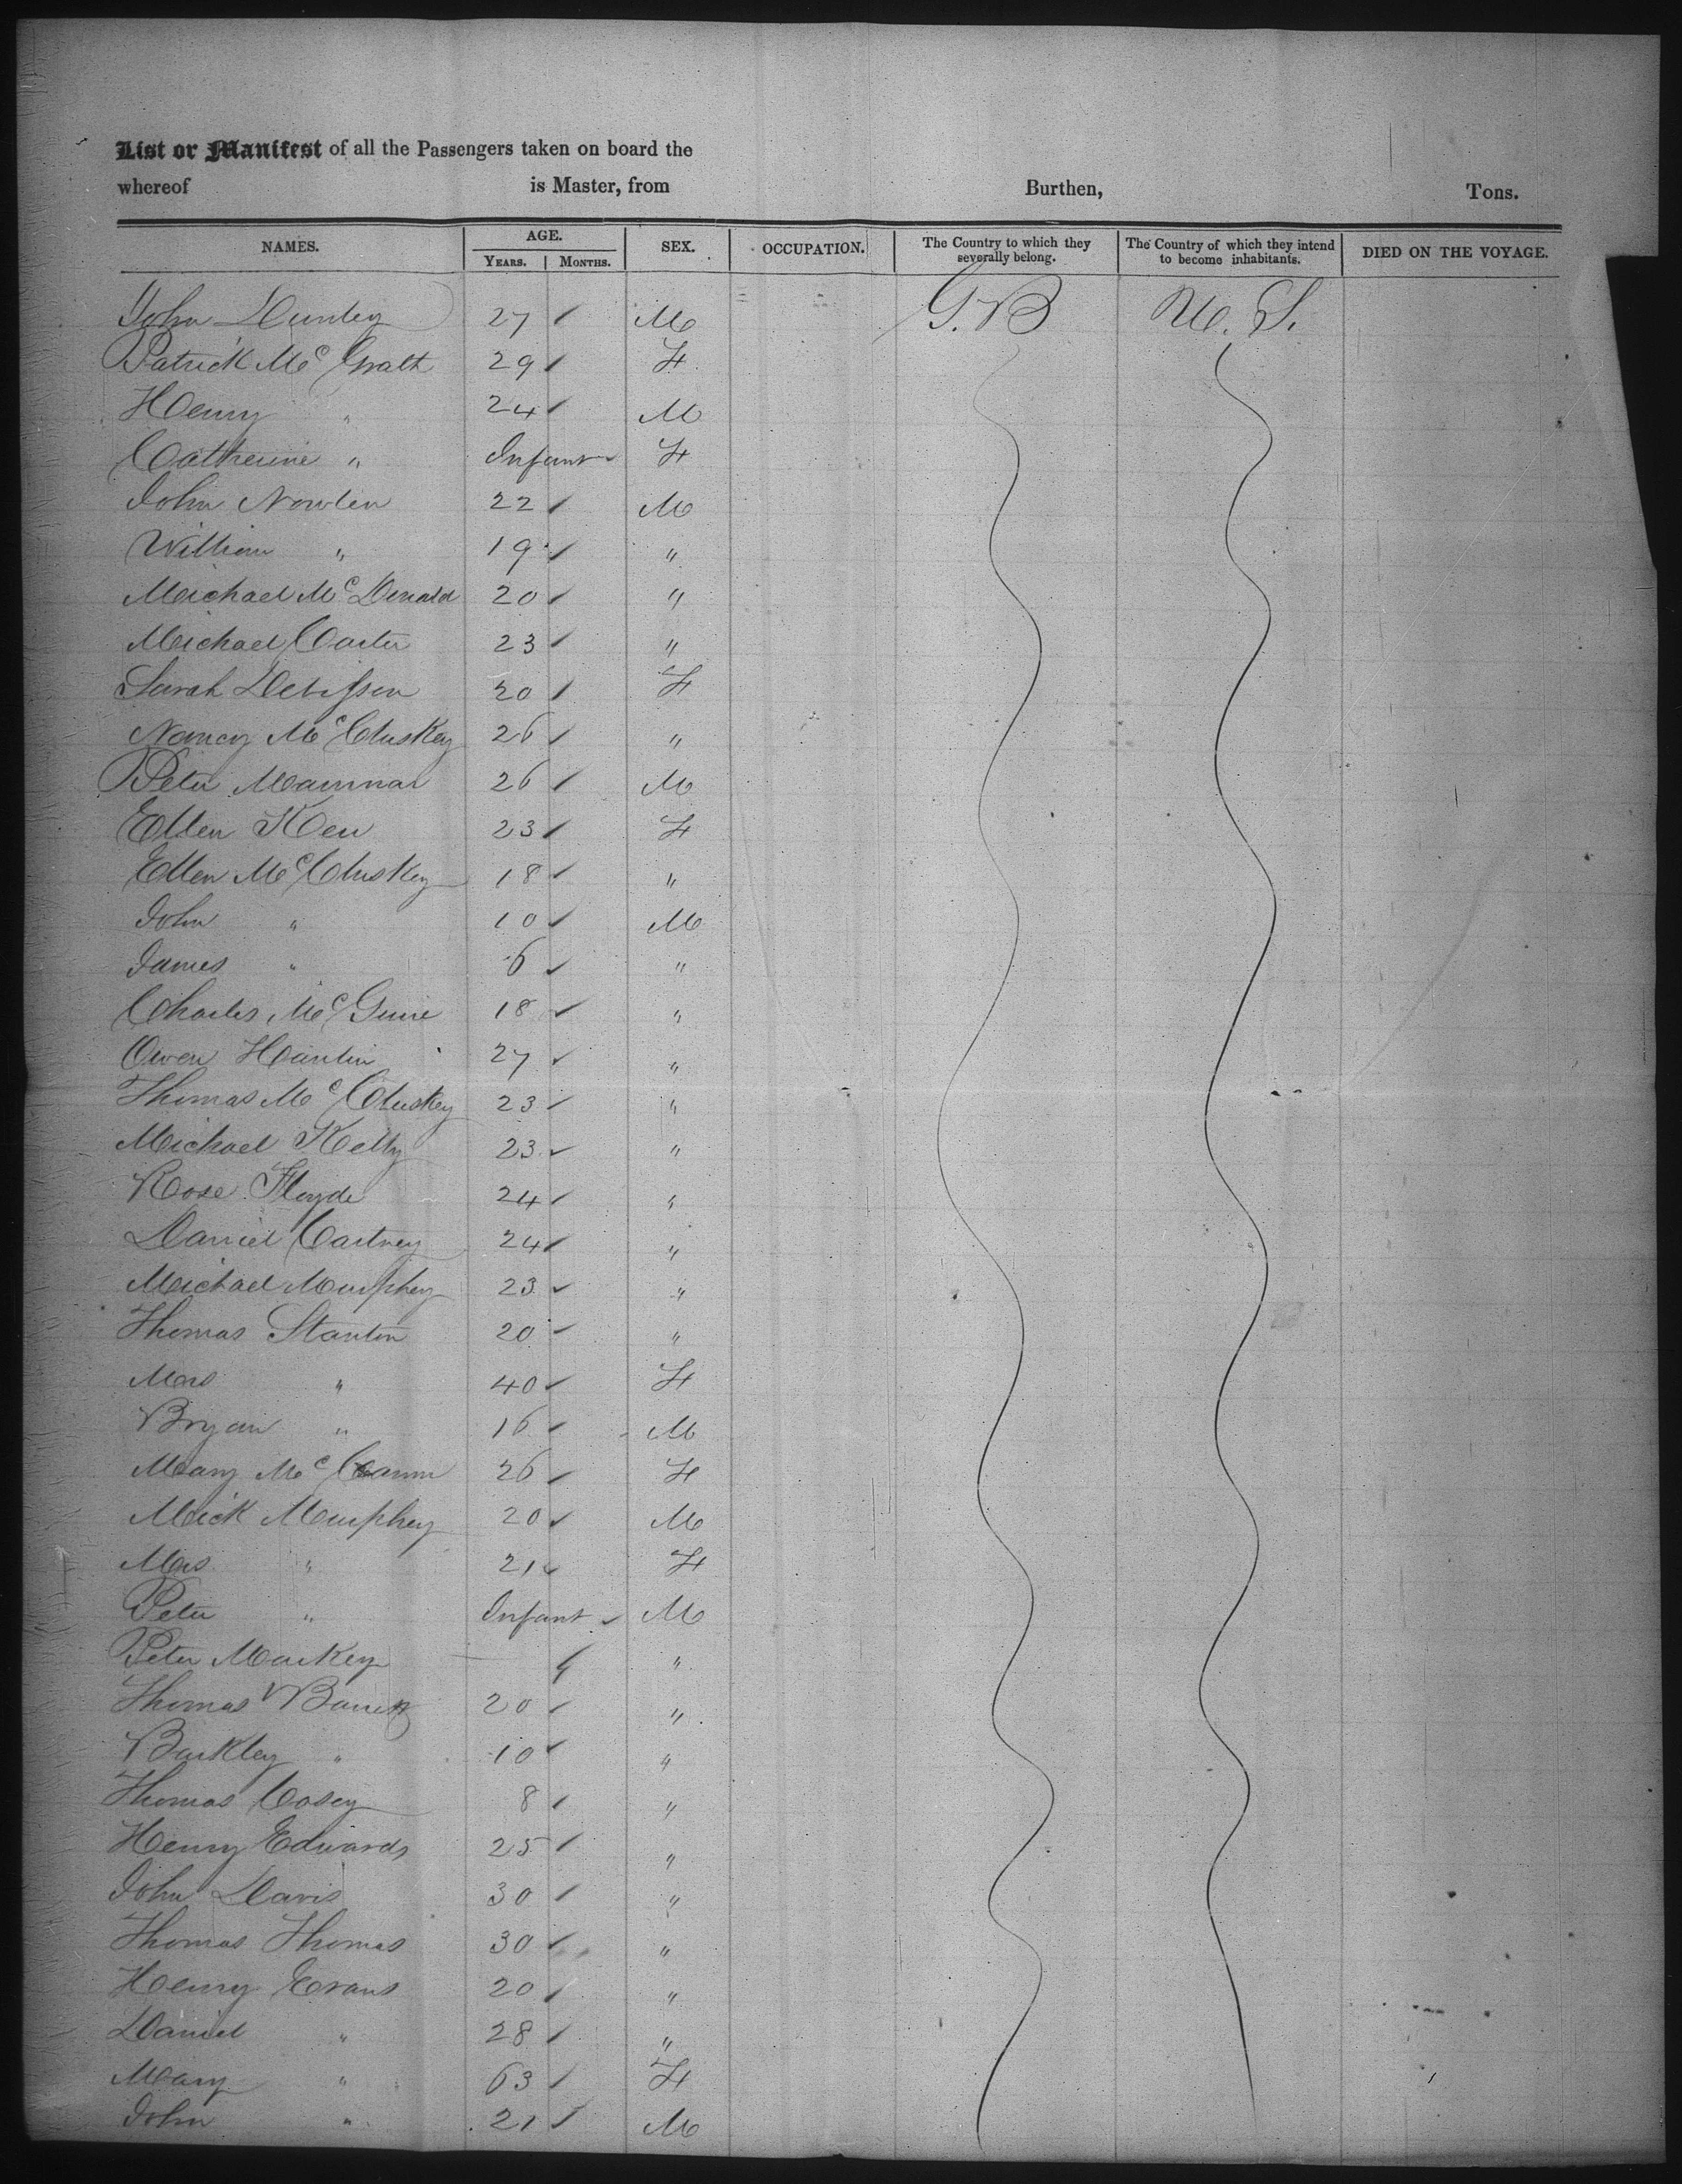 List or Manifest of all the Passengers taken on board the
whereof is Master, from Burthen, Tons.
NAMES. AGE. YEARS. MONTHS. SEX. OCCUPATION. The Country to which they severally belong. The Country of which they intend to become inhabitants. DIED ON THE VOYAGE.
John 27 M G.B U.S.
Patrick Mc Grath 29 F
Henry " 24 M
Catherine " Infant F
John Nowlen 22 M
William " 19 "
Michael McDonald 20 "
Michael Carter 23 "
Sarah 20 F
Nancy McCluskey 26 "
Peter 26 M
Ellen 23 F
Ellen McCluskey 18 "
John " 10 M
James " 6 "
Charles McGuire 18 "
Owen Hanlin 27 "
Thomas McCluskey 23 "
Michael Kelly 23 "
Rose Floyde 24 "
Daniel Cartney 24 "
Michael Murphey 23 "
Thomas Stanton 20 "
Mrs " 40 F
Bryan " 16 M
Mary McCann 26 F
Mick Murphey 20 M
Mrs " 21 F
Peter " Infant M
Peter Markey "
Thomas Barrett 20 "
Barkley " 10 "
Thomas Casey 8 "
Henry Edwards 25 "
John Davis 30 "
Thomas Thomas 30 "
Henry Evans 20 "
Daniel " 28 "
Mary " 63 F
John " 21 M